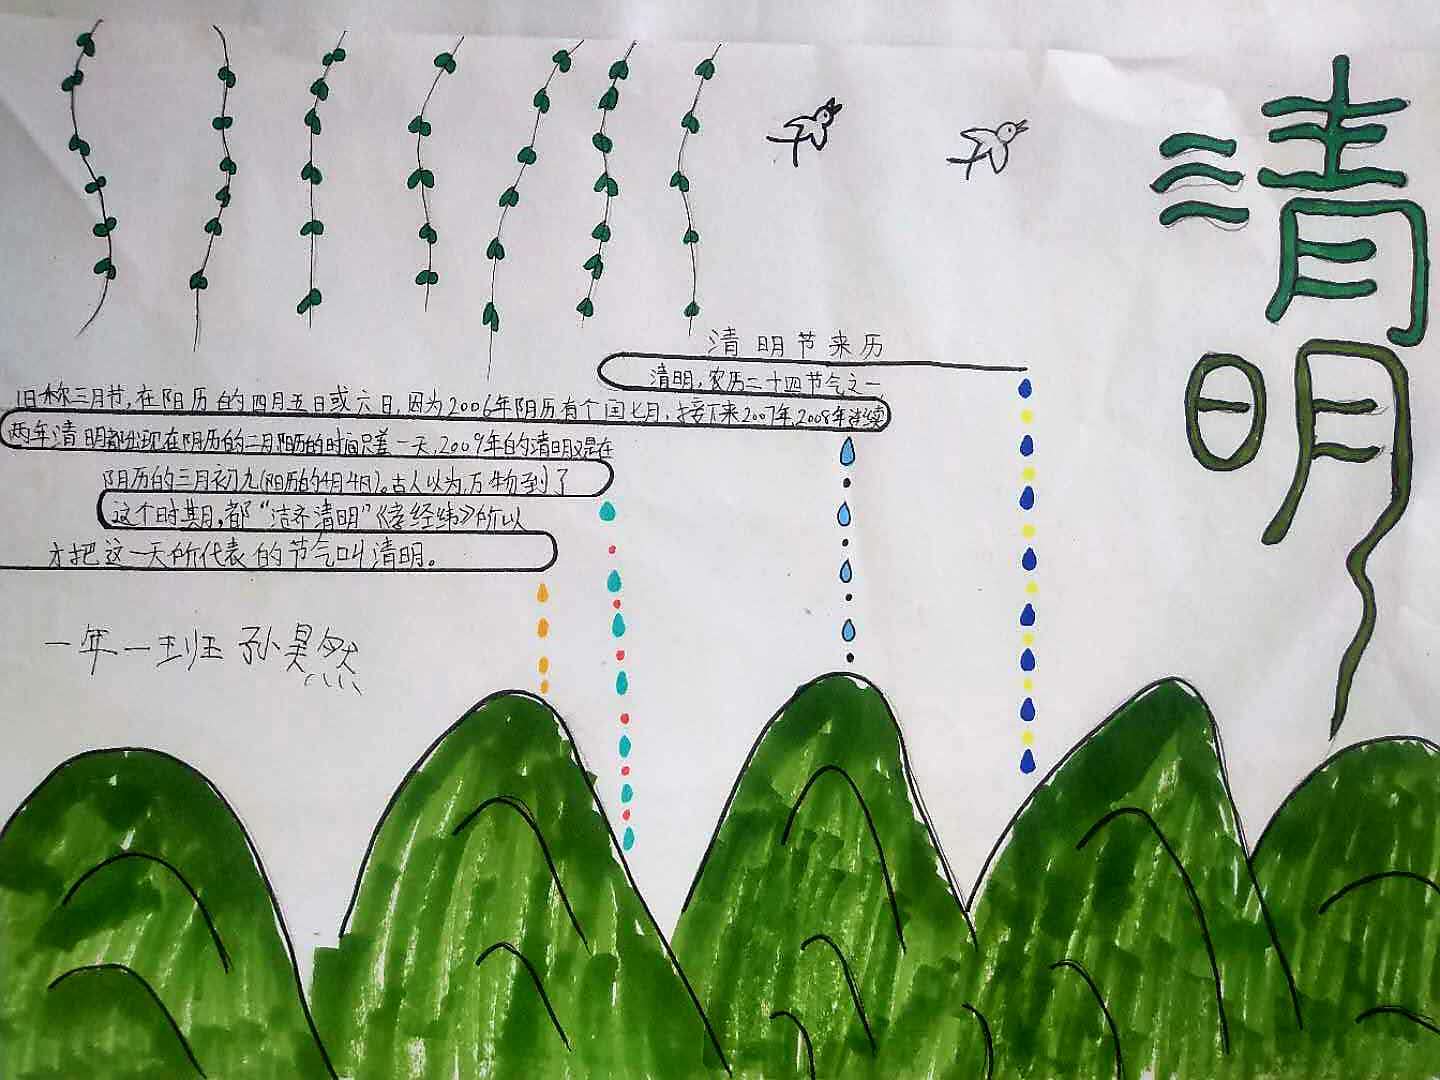 清明
清明节来历
清明,农历二十四节气之一
旧称三月节,在阳历的四月五日或六日,因为2006年阴历有个闰七月,接下来2007年,2008年连续
两年清明都出现在阴历的二月,阳历的时间只差一天,2009年的清明又是在
阴历的三月初九(阳历的4月4日)。古人以为,万物到了
这个时期,都“洁齐清明”《孝经纬》所以
才把这一天所代表的节气叫清明。
一年一班 孙昊然